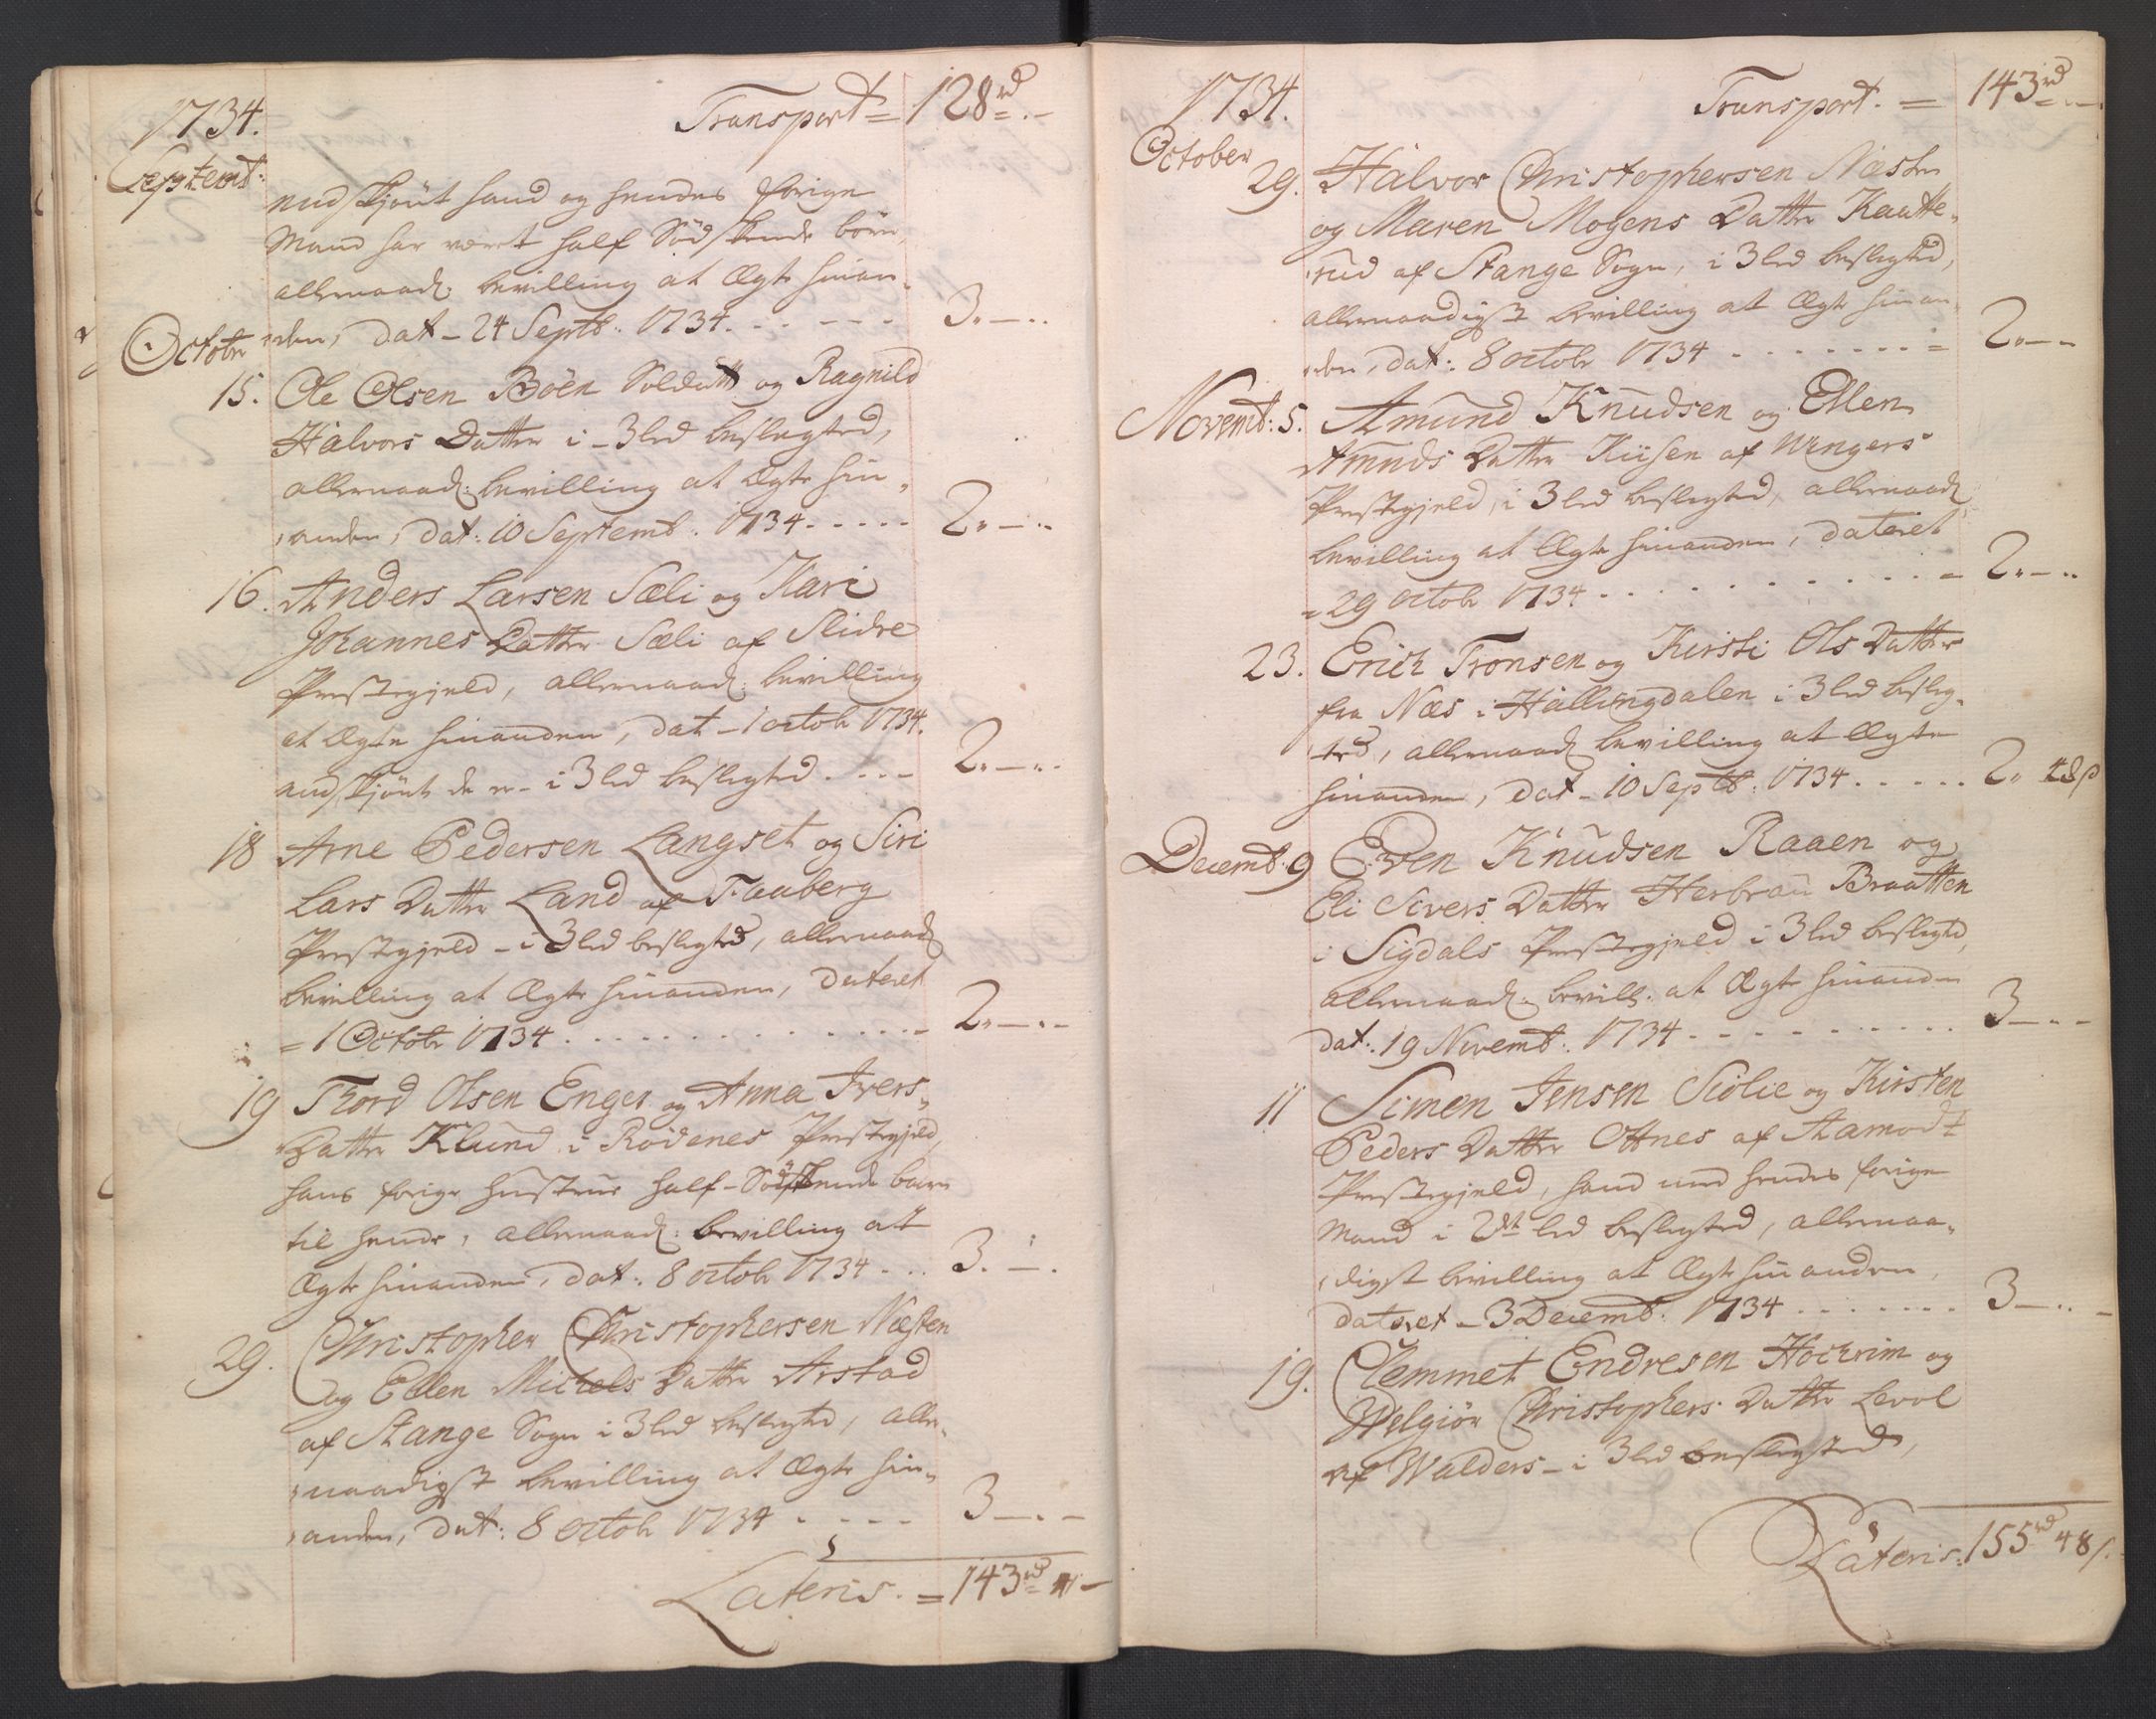 1734.
Transport = 128 rd = . -
Septemb:
endskiönt hand og hendes forige
Mand har været half Södskende börn,
allernaad: bevilling at Ægte hinan-
den, dat - 24 Septb: 1734. - - - - - 3. - . .
Octobr
15. Ole Olsen Böen Soldatt og Ragnild
Halvors Datter i - 3 led beslegted,
allernaad: bevilling at Ægte hin-
anden, dat: 10 Septemb: 1734 - - - - - 2. - . .
16. Anders Larsen Sæli og Kari
Johannes Datter Sæli af Slidre
Prestegjeld, allernaad: bevilling
at Ægte hinanden, dat - 1 octobr 1734.
endskiönt de er - i 3 led beslegted. - - - 2. - . .
18 Arne Pedersen Langset og Siri
Lars Datter Land af Faaberg
Prestegjeld - i 3 led beslegted, allernaad
bevilling at Ægte hinanden, dateret
= 1 Octobr 1734 . . . . . . . . . . - 2. - . -
19 Thord Olsen Enger og Anna Ivers-
Datter Klund i Rödenes Prestegjeld,
hans forige hustrue half-Södskende barn
til hende, allernaad: bevilling at
Ægte hinanden, dat: 8 octobr 1734 - . . 3. - .
29. Christopher Christophersen Næsten
og Ellen Michels Datter Arstad
af Stange Sogn i 3 led beslegted, aller-
naadigst bevilling at Ægte hin-
anden, dat: 8 octobr 1734 - - - - - 3 - . -
Lateris. = 143 rd = -
1734.
Transport. = 143 rd = . -
October
29. Halvor Christophersen Næsten
og Maren Mogens Datter Kaatte-
rud af Stange Sogn, i 3 led beslegted,
allernaadigst bevilling at Ægte hinan-
den, dat: 8 octobr 1734 - - - - - - - = 2. - - -
Novemb: 5. Amund Knudsen og Ellen
Amunds Datter Kiisen af Wingers
Prestegjeld, i 3 led beslegted, allernaad
bevilling at Ægte hinanden, dateret
= 29 octobr 1734 - . . . . . . . . . = 2. - - . .
23. Erich Tronsen og Kirsti Ols Datter
fra Næs i Hallingdalen i 3 led besleg-
ted, allernaad bevilling at Ægte
hinanden, dat - 10 Septb: 1734 . . . . . 2. 48 s
Decemb: 9 Even Knudsen Raaen og
Eli Sivers Datter Herbrau Braatten
i Sigdals Prestegjeld i 3 led beslegted,
allernaad: bevill: at Ægte hinanden
dat: 19 Novemb: 1734 - - - - - - - - 3 - . . -
11 Simen Jensen Siolie og Kirsten
Peders Datter Ottnes af Aamodt
Prestegjeld, hand med hendes forige
Mand i 2det led beslegted, allernaa-
digst bevilling at Ægte hinanden,
dateret - 3 Decemb: 1734 . . . . . . . 3 - . . -
19. Clemmet Endresen Hochrim og
Welgiör Christophers Datter Levol
af Walders - i 3 led beslegted,
Lateris: 155 rd 48 s.